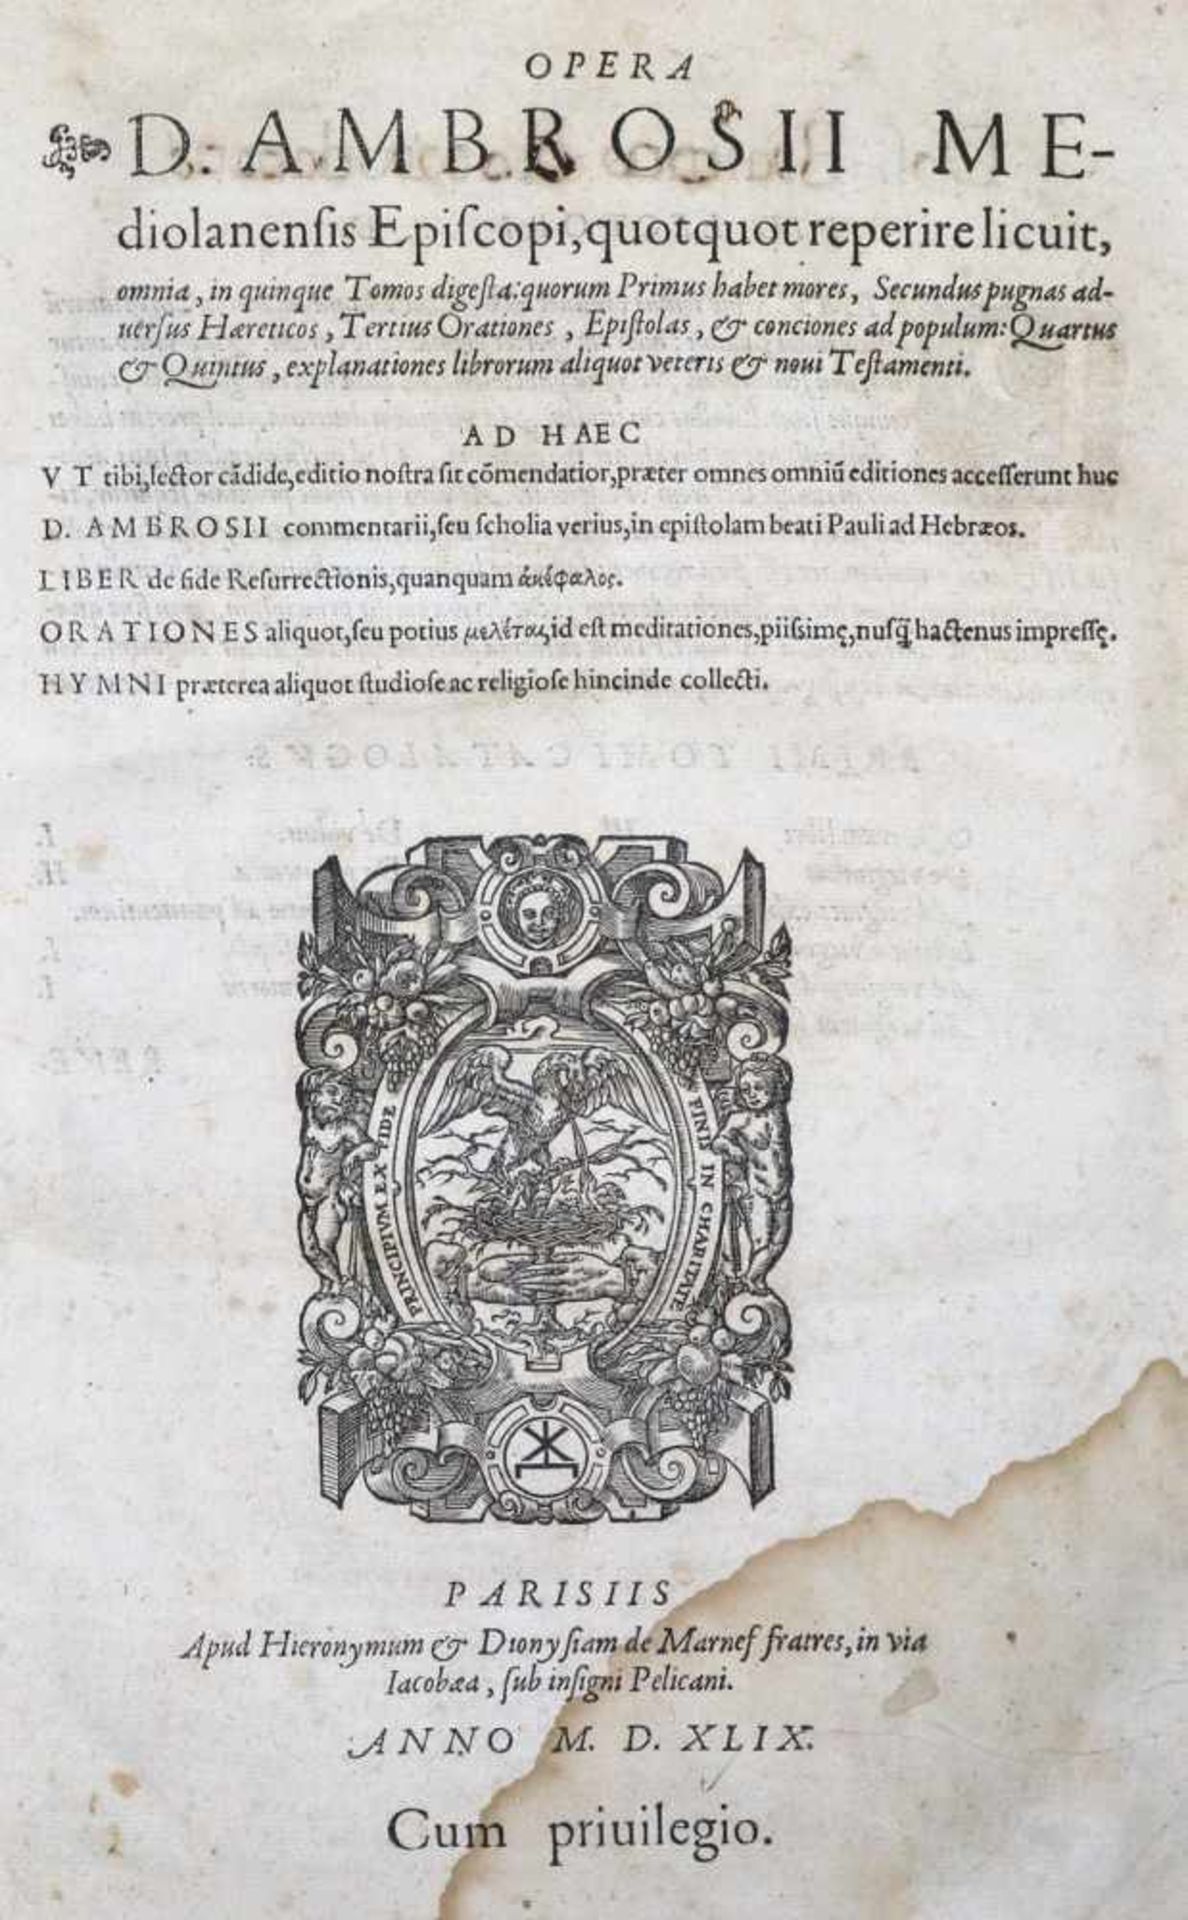 OPERA
D. AMBROSII ME-
diolanenſis Epiſcopi, quotquot reperire licuit,
omnia, in quinque Tomos digeſta: quorum Primus habet mores, Secundus pugnas ad-
uerſus Hæreticos, Tertius Orationes, Epiſtolas, & conciones ad populum: Quartus
& Quintus, explanationes librorum aliquot veteris & noui Teſtamenti.
AD HAEC
VT tibi, lector cãdide, editio noſtra ſit cõmendatior, præter omnes omniũ editiones acceſſerunt huc
D. AMBROSII commentarii, ſeu ſcholia verius, in epiſtolam beati Pauli ad Hebræos.
LIBER de fide Reſurrectionis, quanquam ἀκέφαλος.
ORATIONES aliquot, ſeu potius μελέται, id eſt meditationes, piiſsimę, nuſq̃ hactenus impreſſę.
HYMNI præterea aliquot ſtudioſe ac religioſe hincinde collecti.
PRINCIPIVM EX FIDE
FINIS IN CHARITATE
PARISIIS
Apud Hieronymum & Dionyſiam de Marnef fratres, in via
Iacobæa, ſub inſigni Pelicani.
ANNO M. D. XLIX.
Cum priuilegio.